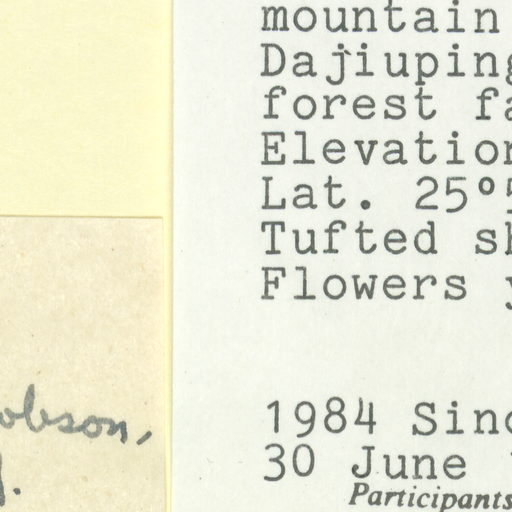 mountain
Dajiuping
forest fa
Elevation
Lat. 25°5
Tufted sh
Flowers y
obson,
1984 Sino
30 June
Participants